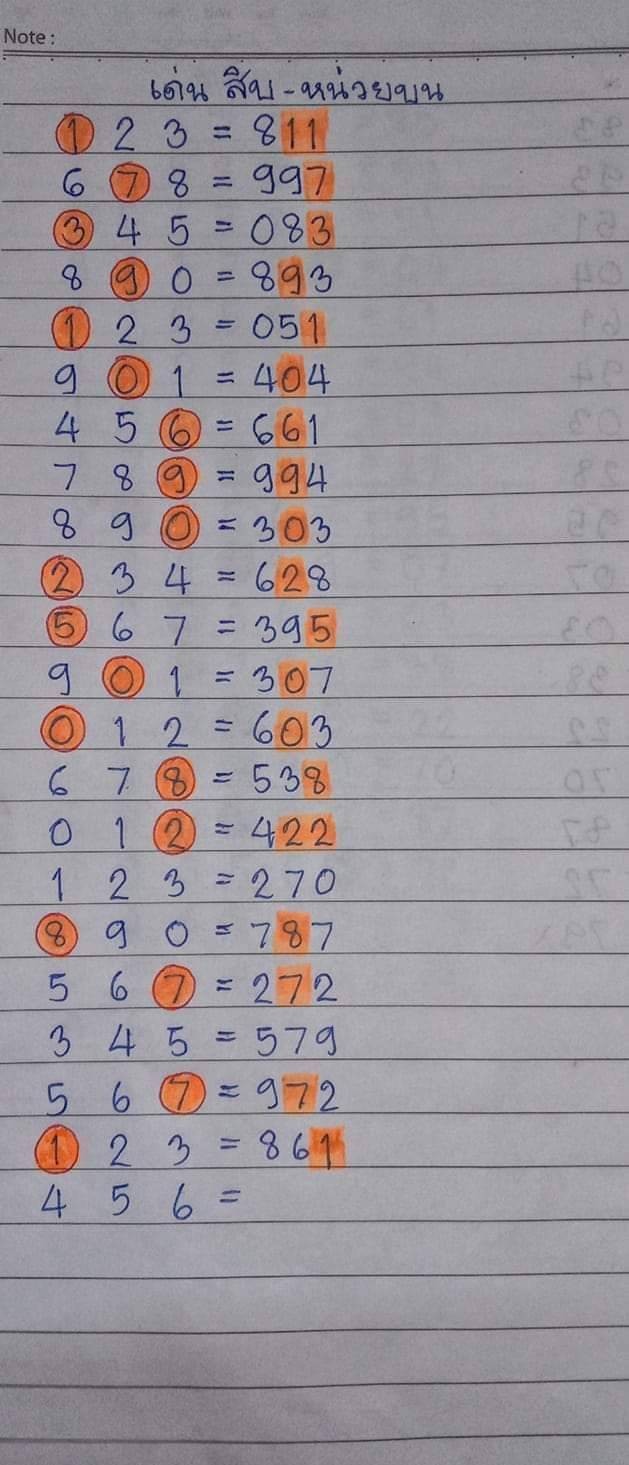 Note :
เด่น สิบ - หน่วยบน
1 2 3 = 811
6 7 8 = 997
3 4 5 = 083
8 9 0 = 893
1 2 3 = 051
9 0 1 = 404
4 5 6 = 661
7 8 9 = 994
8 9 0 = 303
2 3 4 = 628
5 6 7 = 395
9 0 1 = 307
0 1 2 = 603
6 7 8 = 538
0 1 2 = 422
1 2 3 = 270
8 9 0 = 787
5 6 7 = 272
3 4 5 = 579
5 6 7 = 972
1 2 3 = 861
4 5 6 =